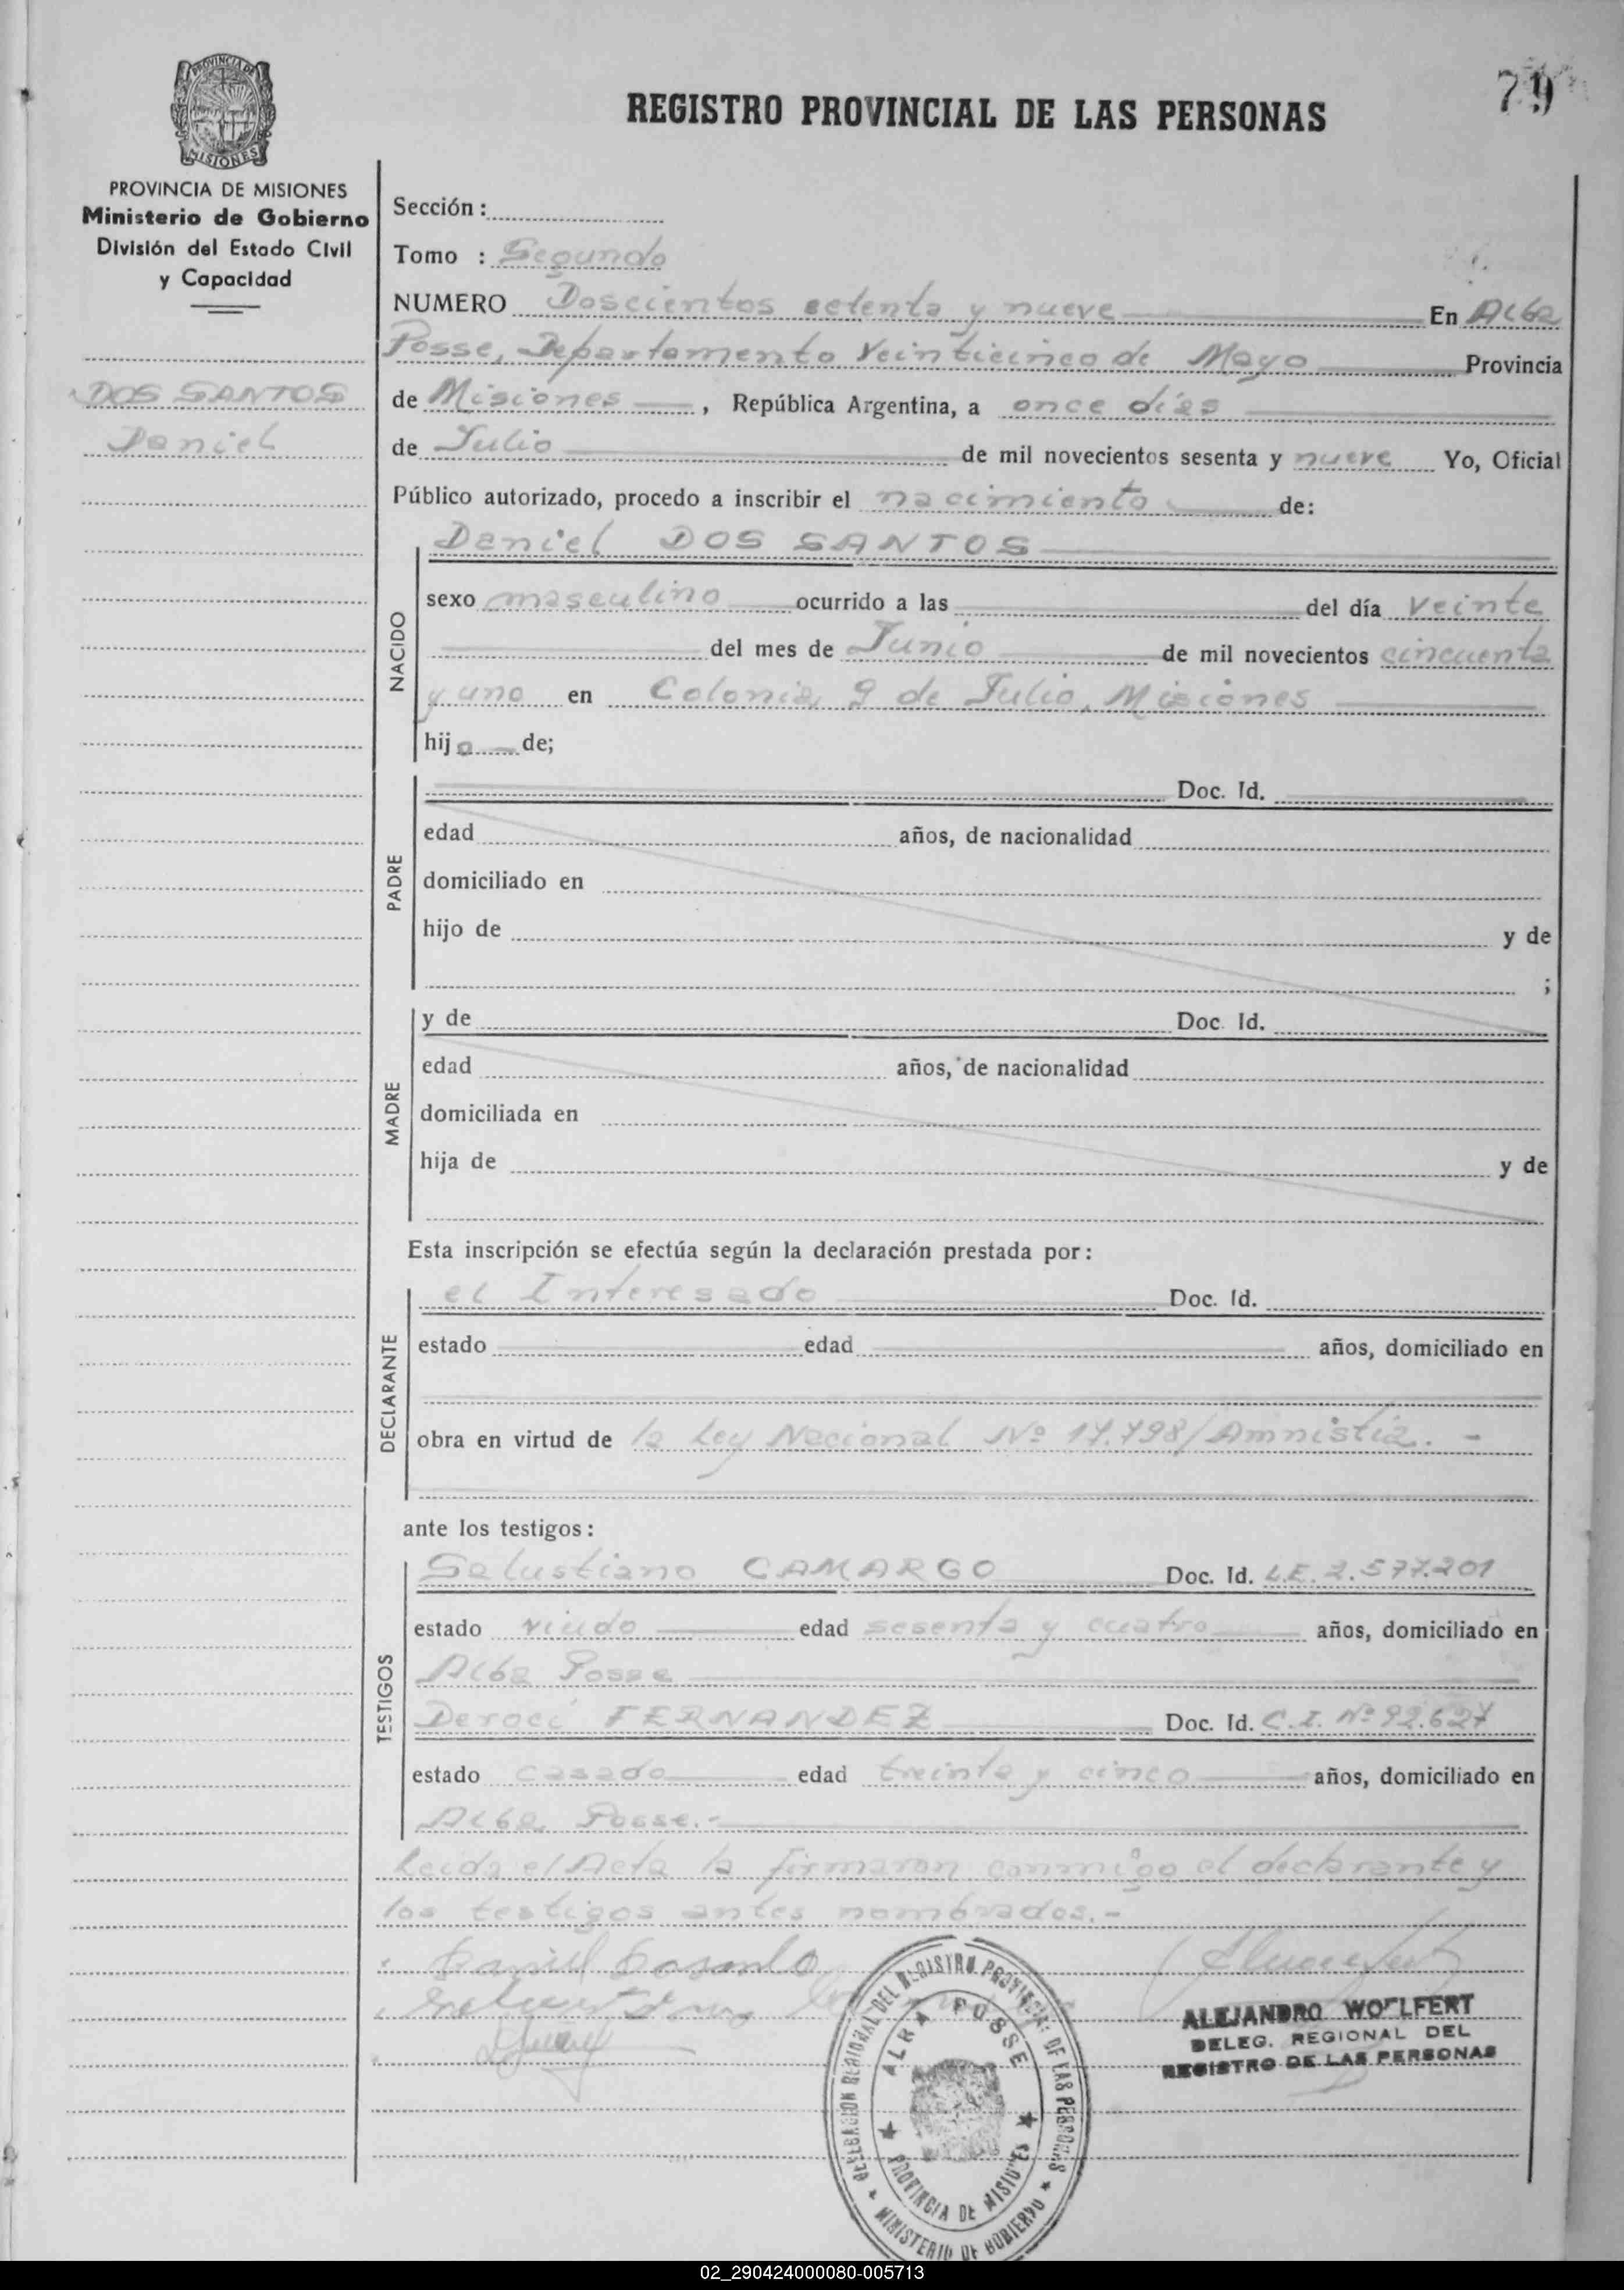 79
REGISTRO PROVINCIAL DE LAS PERSONAS
PROVINCIA DE
MISIONES
PROVINCIA DE MISIONES
Ministerio de Gobierno
División del Estado Civil
y Capacidad
DOS SANTOS
Daniel
Sección :
Tomo : Segundo
NUMERO Doscientos setenta y nueve En Alba
Posse, Departamento Veinticinco de Mayo Provincia
de Misiones , República Argentina, a once días
de Julio de mil novecientos sesenta y nueve Yo, Oficial
Público autorizado, procedo a inscribir el nacimiento de:
NACIDO
Daniel DOS SANTOS
sexo masculino ocurrido a las del día veinte
del mes de Junio de mil novecientos cincuenta
y uno en Colonia 9 de Julio, Misiones
hijo de;
PADRE
Doc. Id.
edad años, de nacionalidad
domiciliado en
hijo de y de
;
MADRE
y de Doc. Id.
edad años, de nacionalidad
domiciliada en
hija de y de
Esta inscripción se efectúa según la declaración prestada por:
DECLARANTE
el Interesado Doc. Id.
estado edad años, domiciliado en
obra en virtud de la Ley Nacional Nº 17.798/Amnistía. -
ante los testigos:
TESTIGOS
Salustiano CAMARGO Doc. Id. L.E. 2.577.201
estado viudo edad sesenta y cuatro años, domiciliado en
Alba Posse
Deroci FERNANDEZ Doc. Id. C.I. Nº 92.627
estado casado edad treinta y cinco años, domiciliado en
Alba Posse.-
Leída el Acta la firmaron conmigo el declarante y
los testigos antes nombrados.-
ALEJANDRO WOLFERT
DELEG. REGIONAL DEL
REGISTRO DE LAS PERSONAS
DELEGACION REGIONAL DEL REGISTRO PROVINCIAL DE LAS PERSONAS
ALBA POSSE
PROVINCIA DE MISIONES
MINISTERIO DE GOBIERNO
02_290424000080-005713